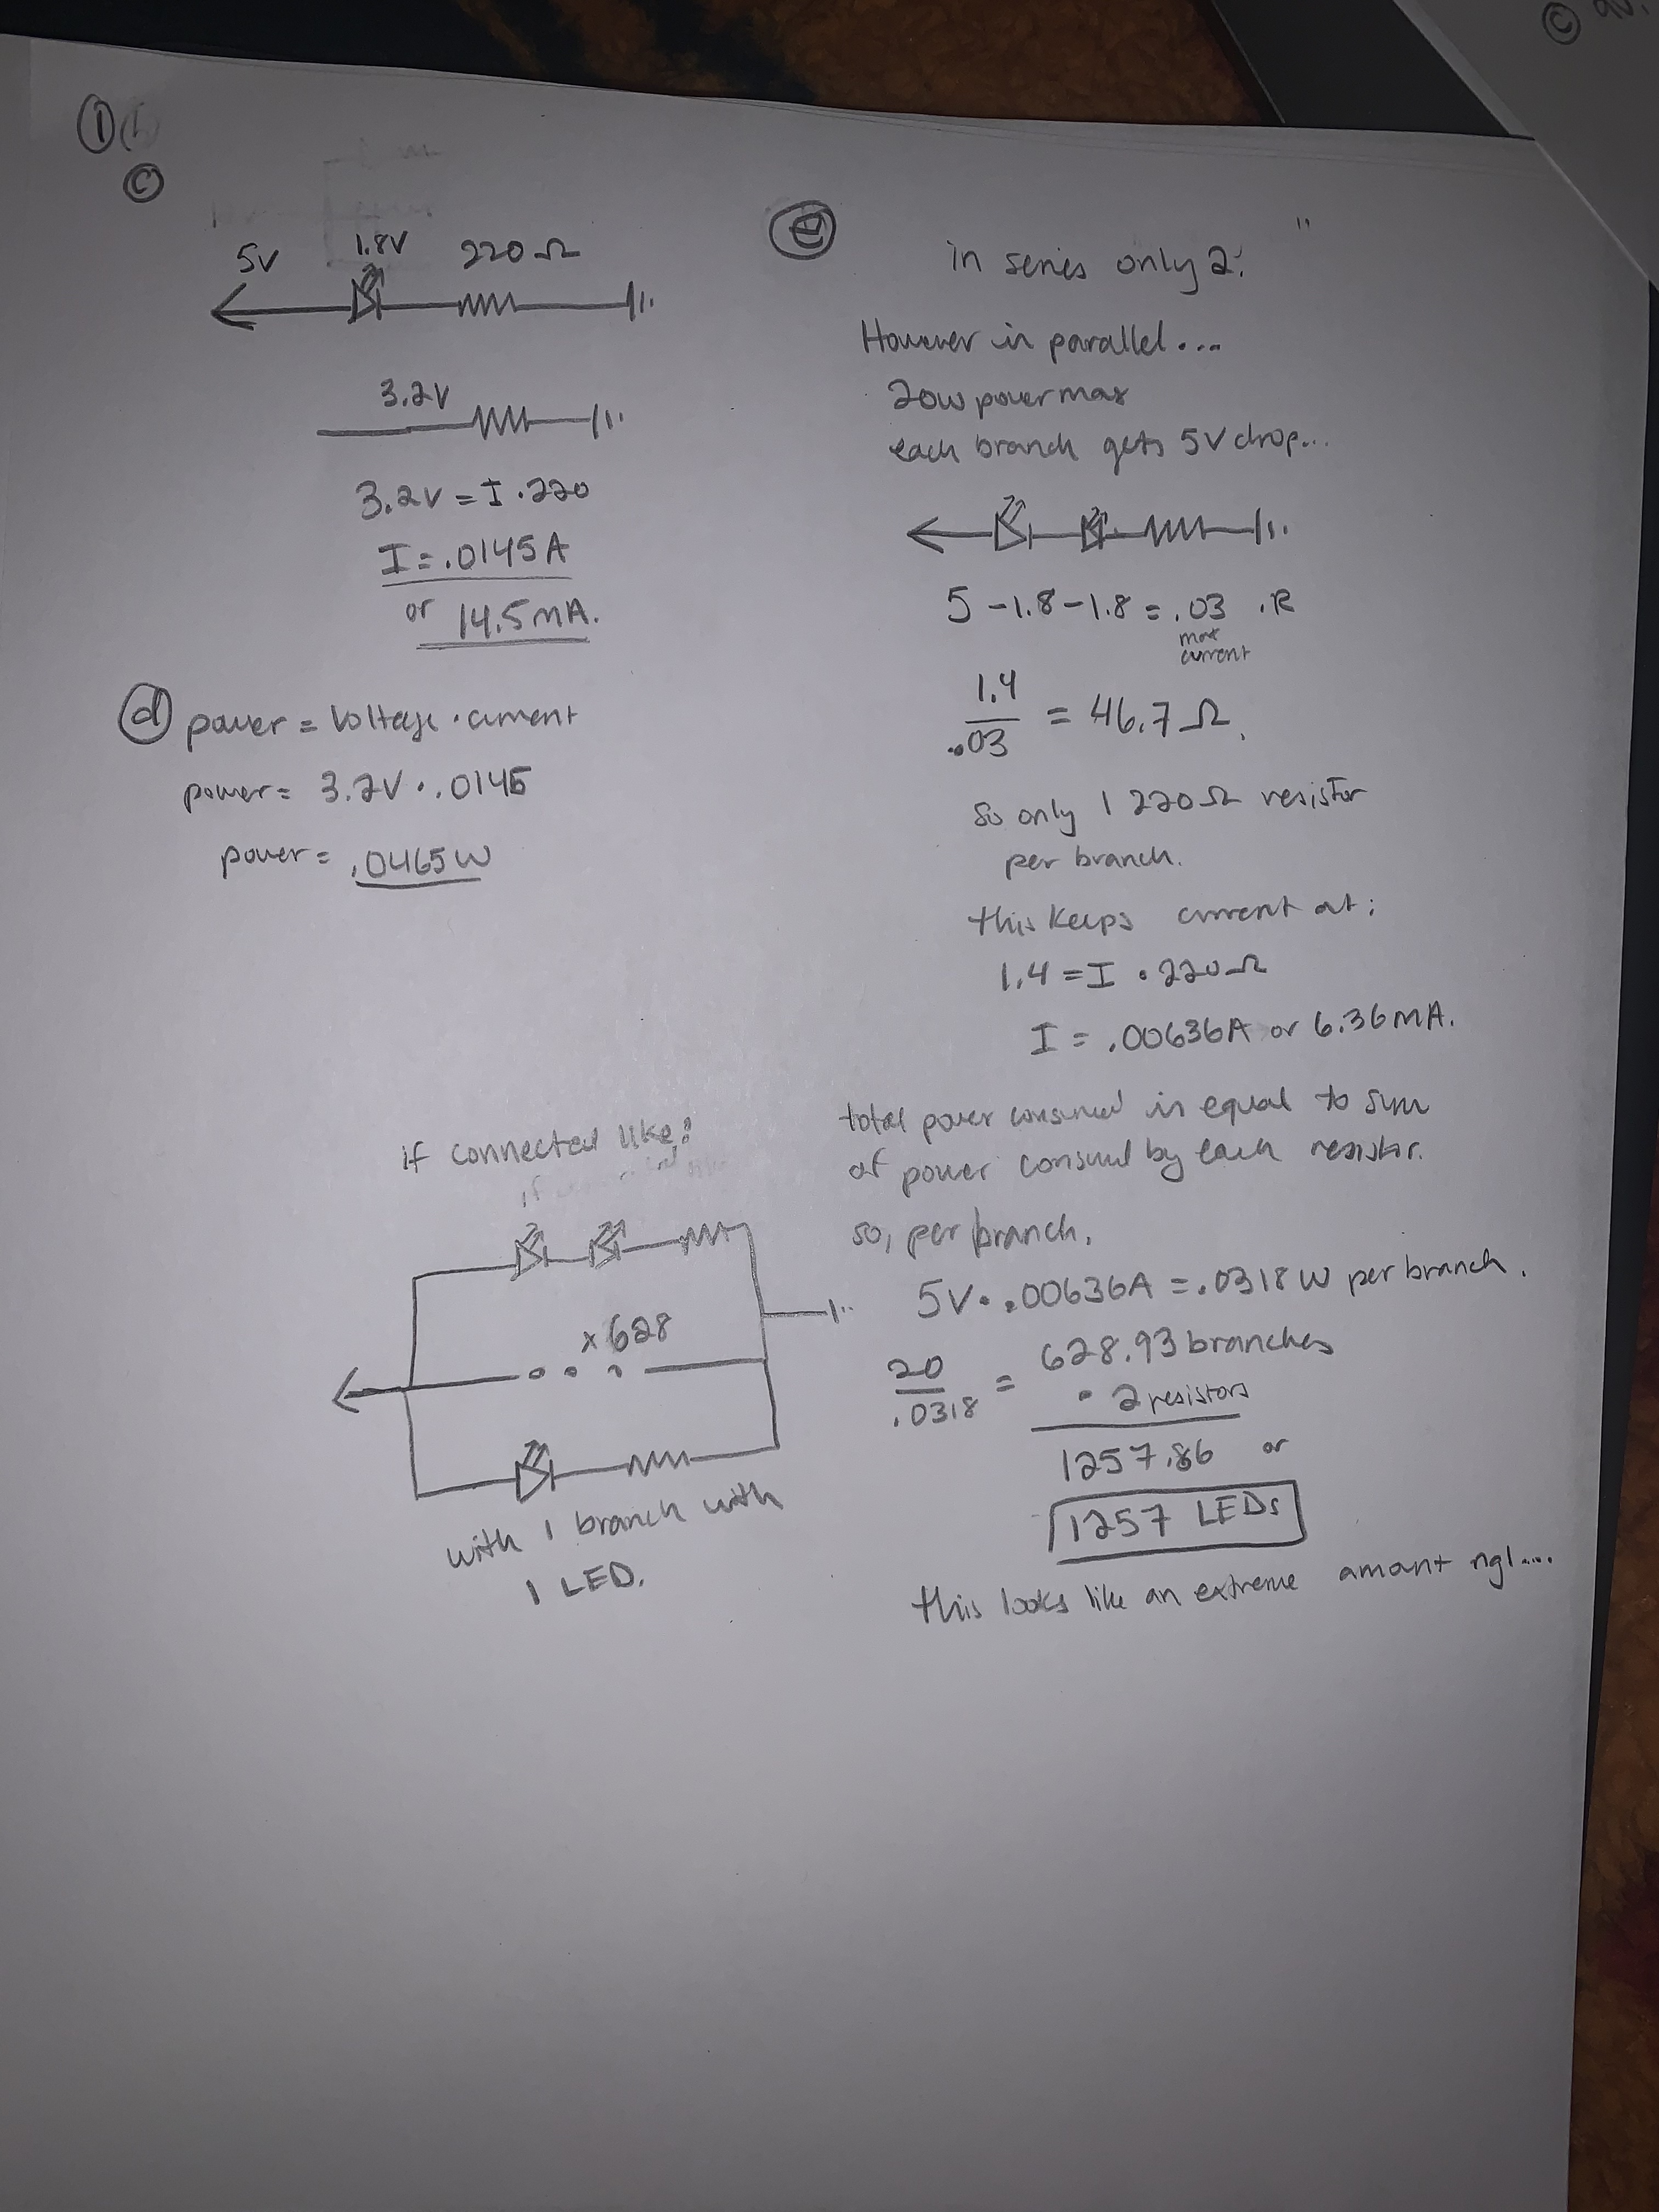 ①
ⓒ
5V 1.8V 220Ω
3.2V
3.2V = I · 220
I = .0145A
or 14.5mA.
ⓓ power = Voltage · current
power = 3.2V · .0145
power = .0465W
ⓔ in series only 2.
However in parallel...
20W power max
each branch gets 5V drop...
5 - 1.8 - 1.8 = .03 · R
max
current
1.4
.03 = 46.7Ω.
So only 1 220Ω resistor
per branch.
this keeps current at:
1.4 = I · 220Ω
I = .00636A or 6.36mA.
total power consumed is equal to sum
of power consumed by each resistor.
so, per branch.
5V · .00636A = .0318W per branch.
20
.0318 = 628.93 branches
· 2 resistors
1257.86 or
1257 LEDs
this looks like an extreme amount ngl....
if connected like:
x 628
with 1 branch with
1 LED.
©